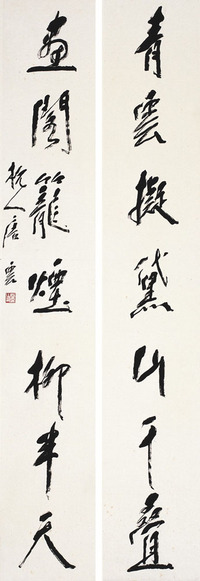 青雲擬黛山千疊
畫閣籠煙柳半天
杭人唐雲